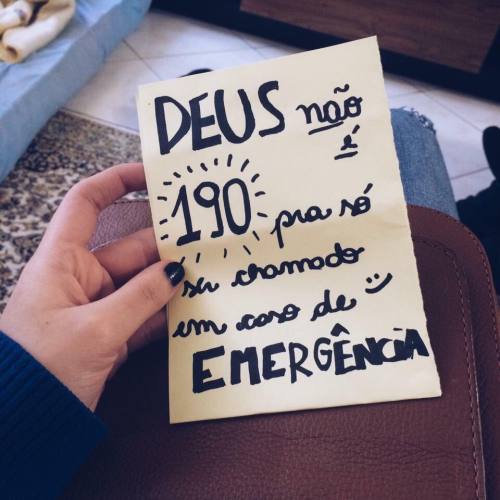 DEUS não
é
190 pra só
ser chamado
em caso de :)
EMERGÊNCIA